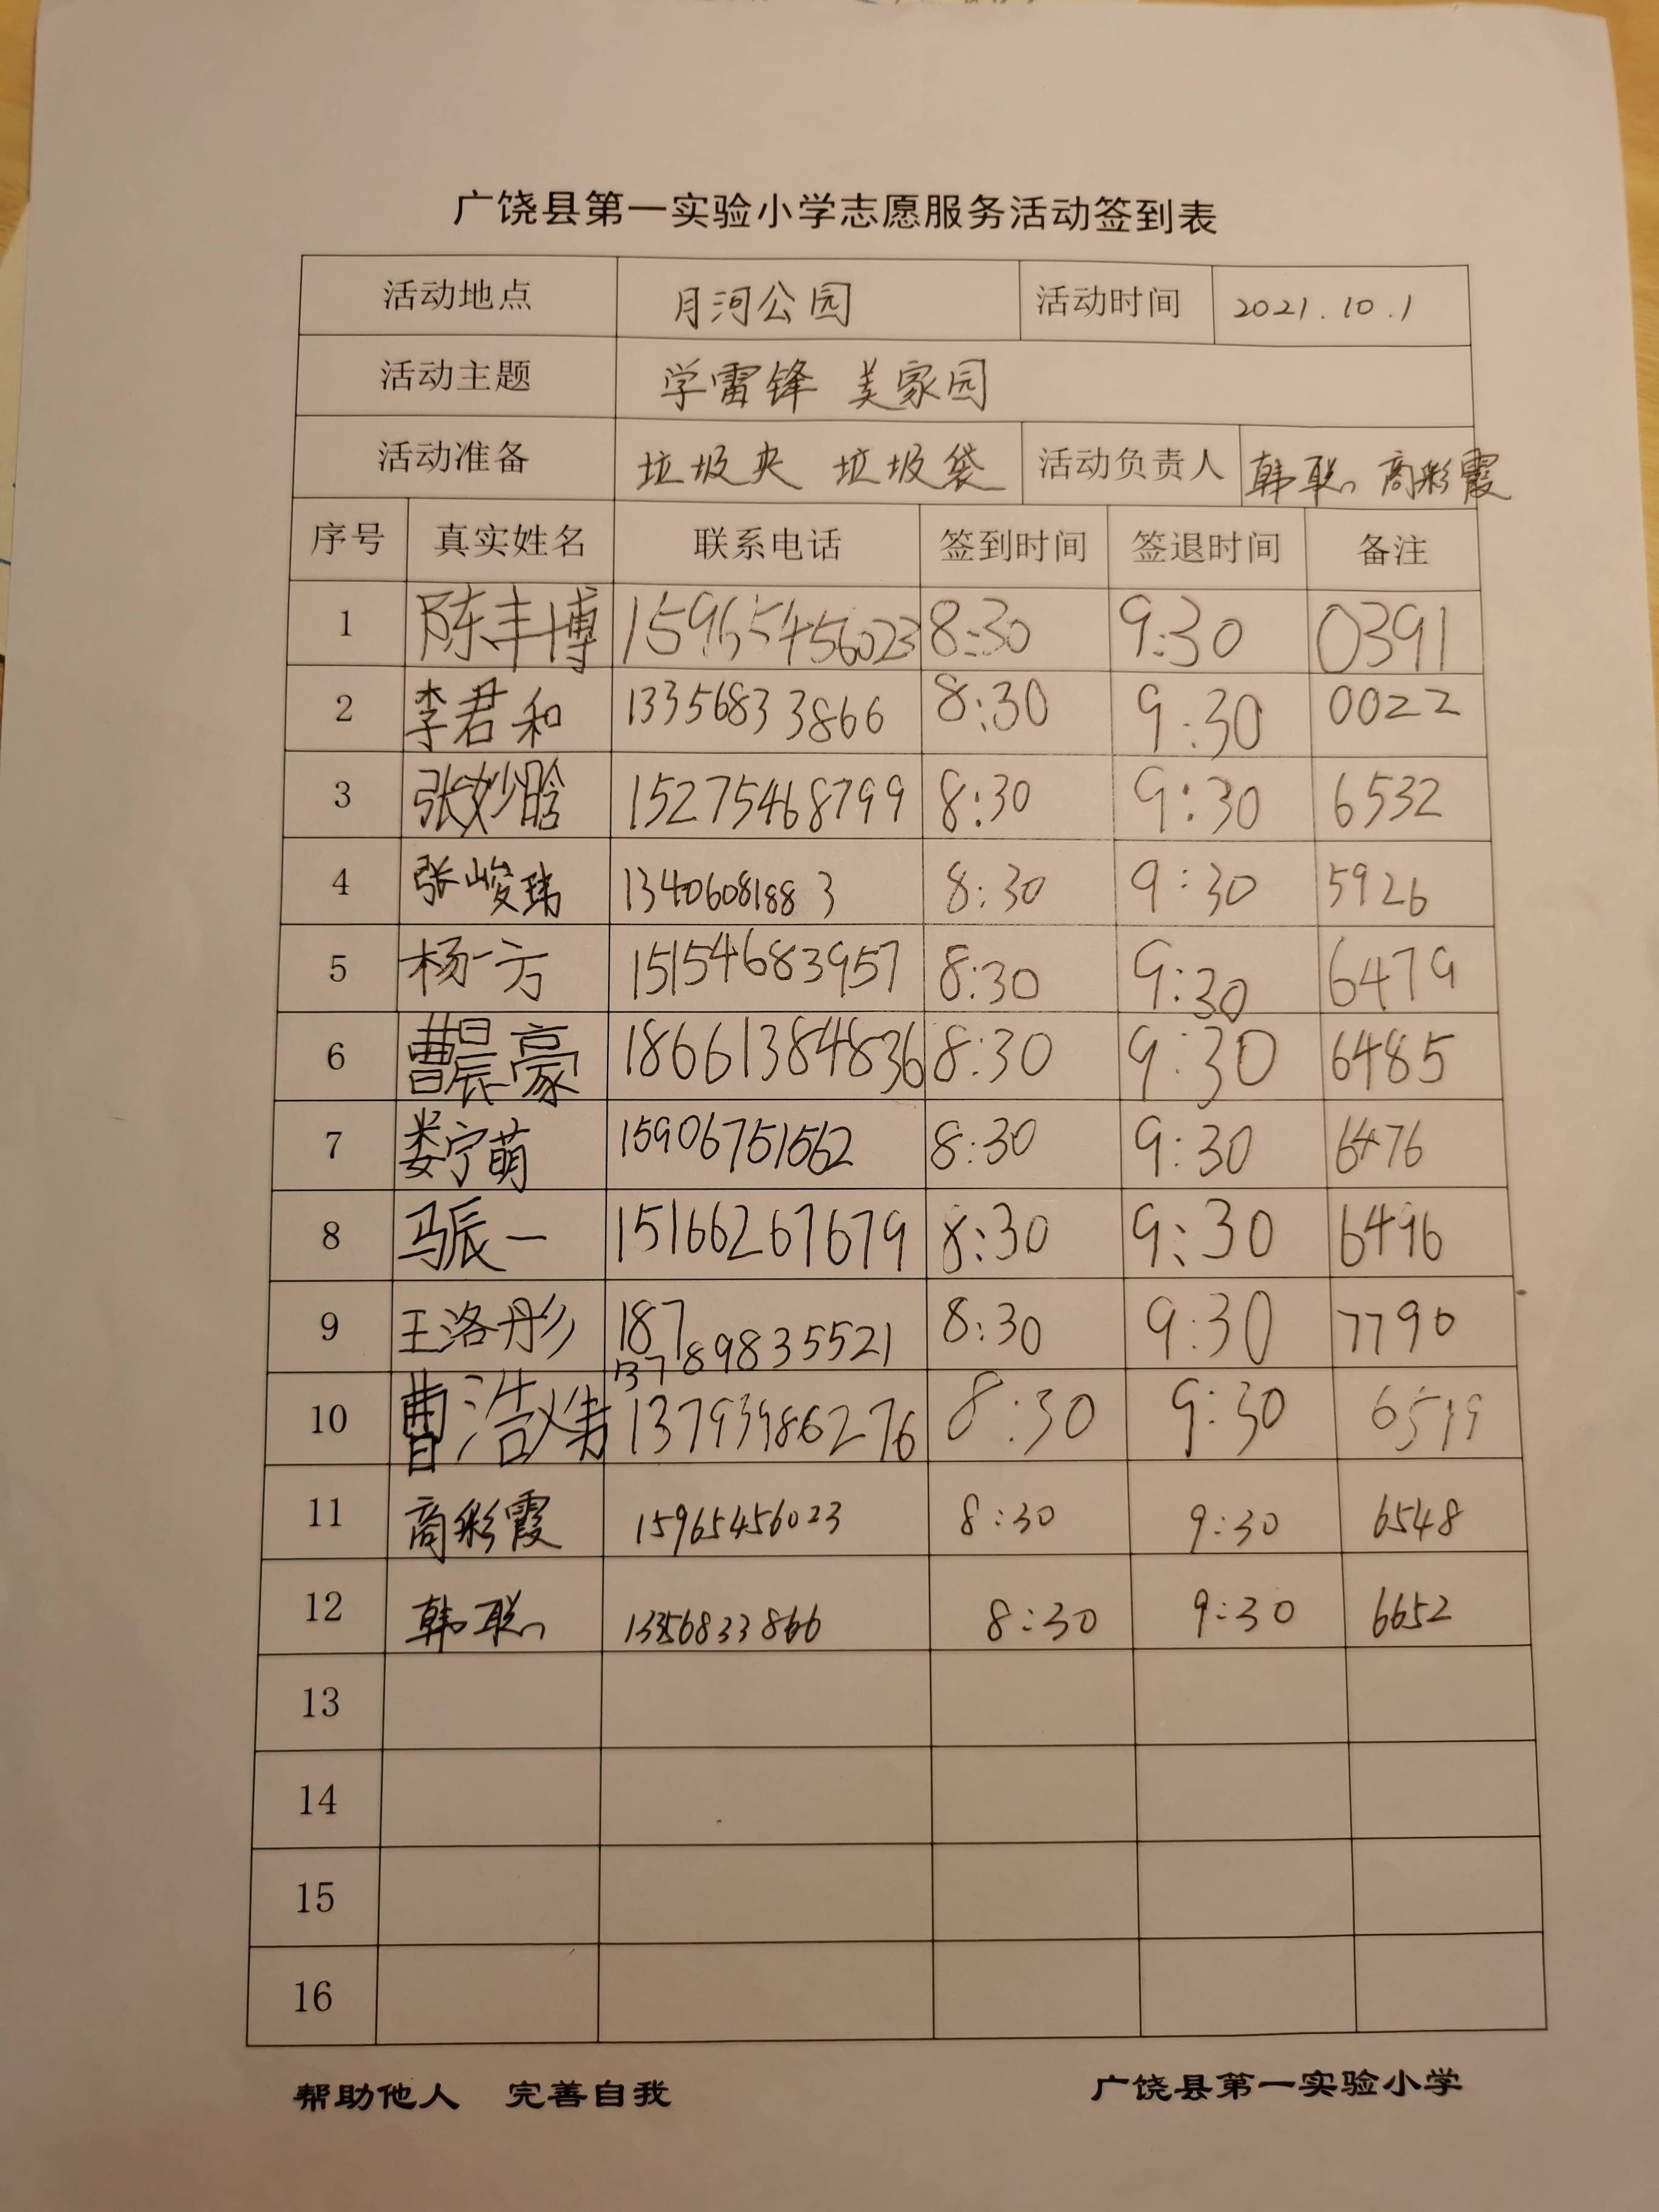 广饶县第一实验小学志愿服务活动签到表
活动地点 月河公园 活动时间 2021.10.1
活动主题 学雷锋 美家园
活动准备 垃圾夹 垃圾袋 活动负责人 韩聪 商彩霞
序号 真实姓名 联系电话 签到时间 签退时间 备注
1 陈丰博 15965456023 8:30 9:30 0391
2 李君和 13356833866 8:30 9:30 0022
3 张妙晗 15275468799 8:30 9:30 6532
4 张峻玮 13406081883 8:30 9:30 5926
5 杨一方 15154683957 8:30 9:30 6479
6 曹晨豪 18661384836 8:30 9:30 6485
7 娄宁萌 15906751562 8:30 9:30 6476
8 马辰一 15166267679 8:30 9:30 6496
9 王洛彤 18789835521 8:30 9:30 7790
137
10 曹浩 13793986276 8:30 9:30 6519
11 商彩霞 15965456023 8:30 9:30 6548
12 韩聪 13356833866 8:30 9:30 6652
13
14
15
16
帮助他人 完善自我 广饶县第一实验小学